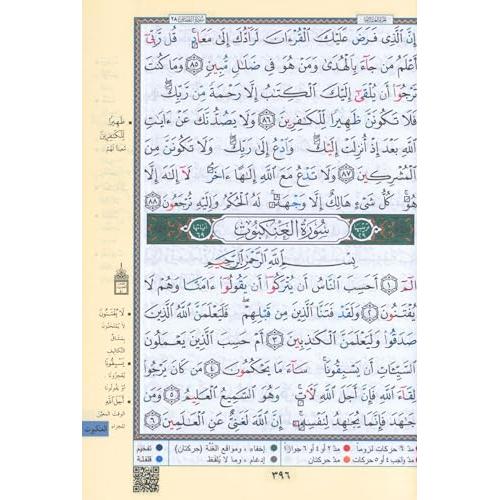 سورة القصص ٢٨
الجزء العشرون
إِنَّ ٱلَّذِى فَرَضَ عَلَيْكَ ٱلْقُرْءَانَ لَرَآدُّكَ إِلَىٰ مَعَادٍ ۚ قُل رَّبِّىٓ
أَعْلَمُ مَن جَآءَ بِٱلْهُدَىٰ وَمَنْ هُوَ فِى ضَلَٰلٍ مُّبِينٍ ٨٥ وَمَا كُنتَ
تَرْجُوٓا۟ أَن يُلْقَىٰٓ إِلَيْكَ ٱلْكِتَٰبُ إِلَّا رَحْمَةً مِّن رَّبِّكَ ۖ
فَلَا تَكُونَنَّ ظَهِيرًا لِّلْكَٰفِرِينَ ٨٦ وَلَا يَصُدُّنَّكَ عَنْ ءَايَٰتِ
ٱللَّهِ بَعْدَ إِذْ أُنزِلَتْ إِلَيْكَ ۖ وَٱدْعُ إِلَىٰ رَبِّكَ ۖ وَلَا تَكُونَنَّ مِنَ
ٱلْمُشْرِكِينَ ٨٧ وَلَا تَدْعُ مَعَ ٱللَّهِ إِلَٰهًا ءَاخَرَ ۘ لَآ إِلَٰهَ إِلَّا
هُوَ ۚ كُلُّ شَىْءٍ هَالِكٌ إِلَّا وَجْهَهُۥ ۚ لَهُ ٱلْحُكْمُ وَإِلَيْهِ تُرْجَعُونَ ٨٨
سُورَةُ الْعَنْكَبُوتِ
آياتها ٦٩
بِسْمِ ٱللَّهِ ٱلرَّحْمَٰنِ ٱلرَّحِيمِ
الٓمٓ ١ أَحَسِبَ ٱلنَّاسُ أَن يُتْرَكُوٓا۟ أَن يَقُولُوٓا۟ ءَامَنَّا وَهُمْ لَا
يُفْتَنُونَ ٢ وَلَقَدْ فَتَنَّا ٱلَّذِينَ مِن قَبْلِهِمْ ۖ فَلَيَعْلَمَنَّ ٱللَّهُ ٱلَّذِينَ
صَدَقُوا۟ وَلَيَعْلَمَنَّ ٱلْكَٰذِبِينَ ٣ أَمْ حَسِبَ ٱلَّذِينَ يَعْمَلُونَ
ٱلسَّيِّـَٔاتِ أَن يَسْبِقُونَا ۚ سَآءَ مَا يَحْكُمُونَ ٤ مَن كَانَ يَرْجُوا۟
لِقَآءَ ٱللَّهِ فَإِنَّ أَجَلَ ٱللَّهِ لَـَٔاتٍ ۚ وَهُوَ ٱلسَّمِيعُ ٱلْعَلِيمُ ٥ وَمَن
جَٰهَدَ فَإِنَّمَا يُجَٰهِدُ لِنَفْسِهِۦٓ ۚ إِنَّ ٱللَّهَ لَغَنِىٌّ عَنِ ٱلْعَٰلَمِينَ ٦
ظَهِيرًا
لِّلْكَٰفِرِينَ
مُعينا لهم
لَا يُفْتَنُونَ
لا يُمتحنون
بمشاقّ
التكاليف
يَسْبِقُونَا
أَجَلَ ٱللَّهِ
الوقت المعيّن
للجزاء
العنكبوت
مدّ ٦ حركات لزوماً
مدّ ٢ أو ٤ أو ٦ جوازاً
إخفاء، ومواقع الغُنّة (حركتان)
تفخيم
مدّ واجب ٤ أو ٥ حركات
مدّ حركتان
إدغام، وما لا يُلفظ
قلقلة
٣٩٦